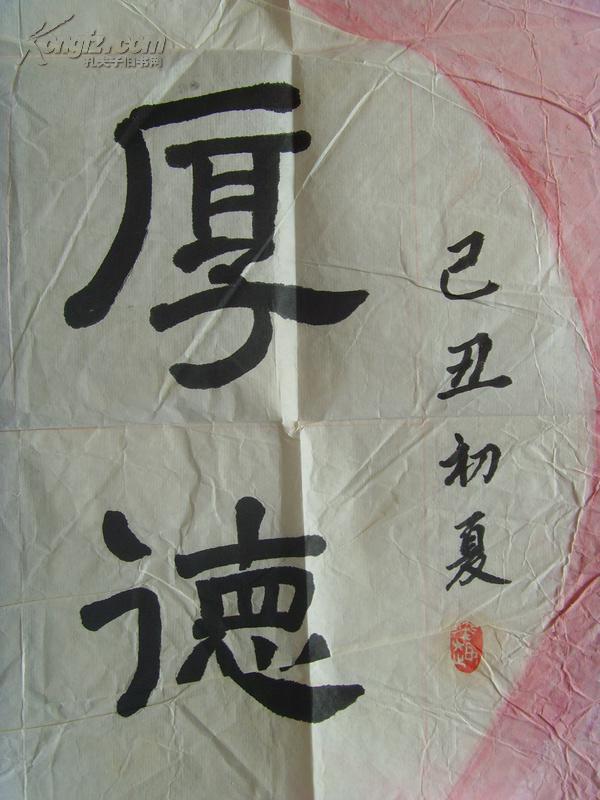 Kongfz.com
孔夫子旧书网
己丑初夏
厚德